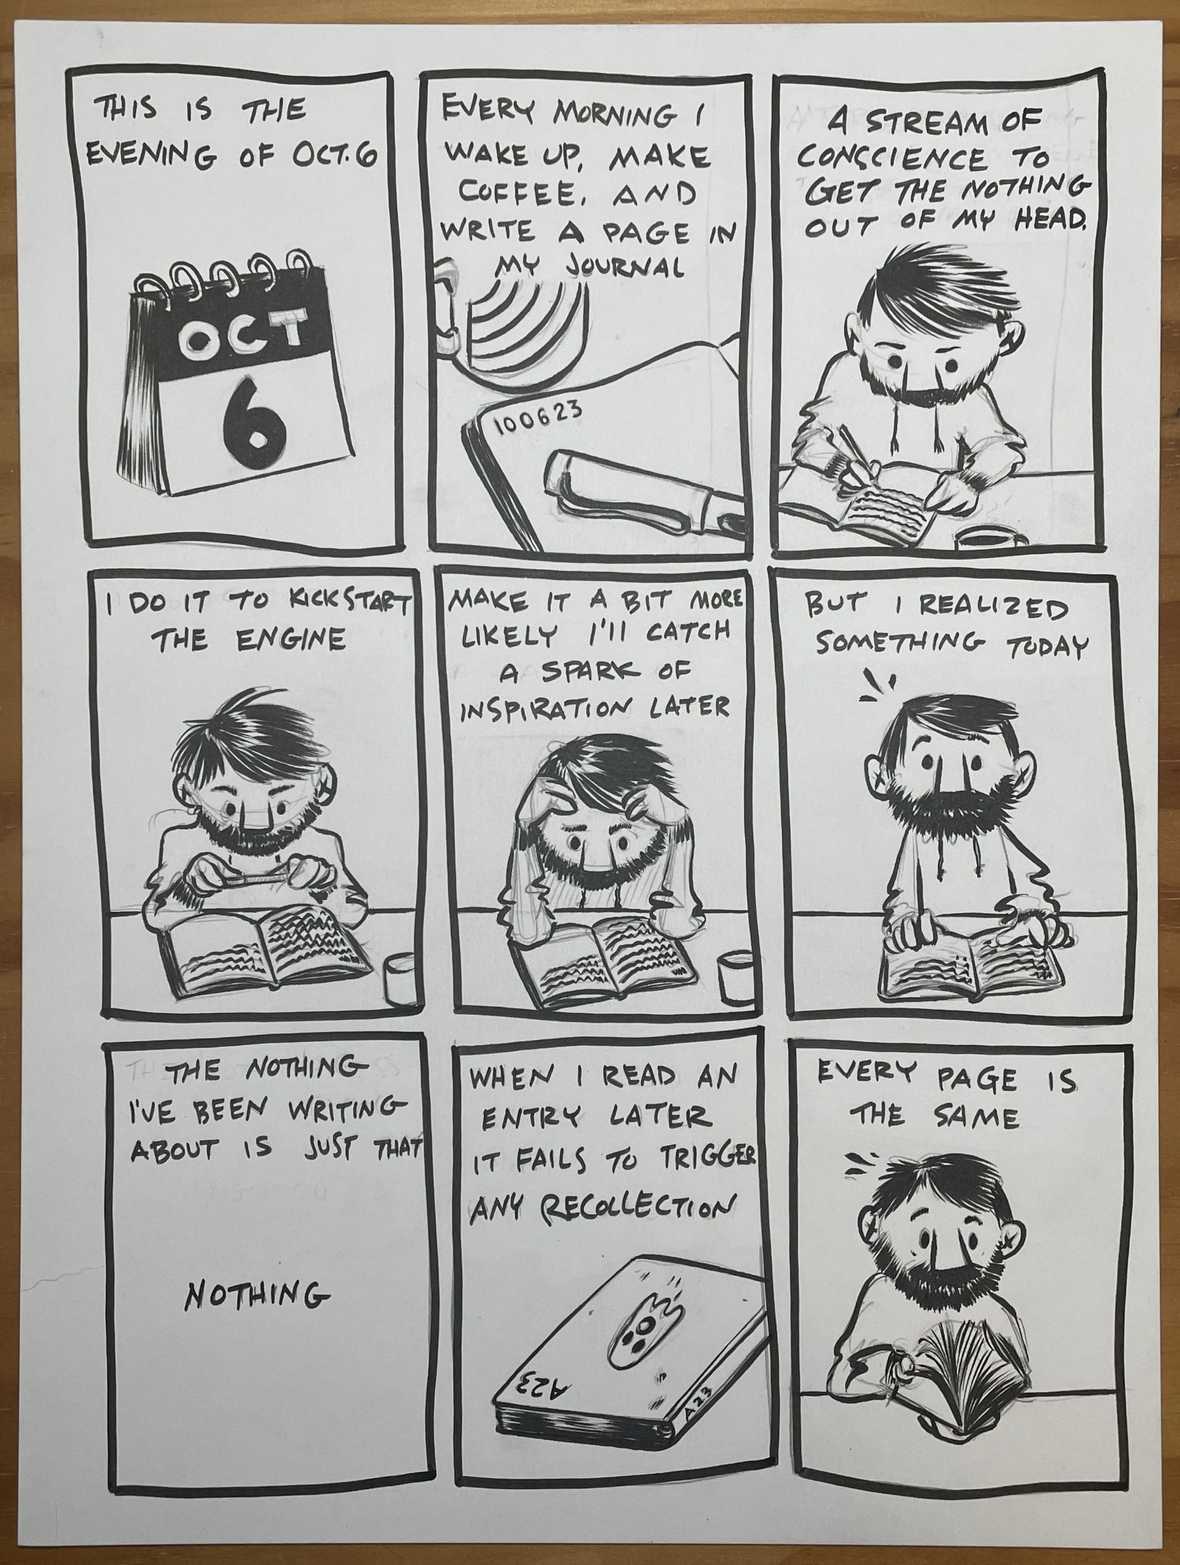 THIS IS THE
EVENING OF OCT. 6
OCT
6
EVERY MORNING I
WAKE UP, MAKE
COFFEE, AND
WRITE A PAGE IN
MY JOURNAL
100623
A STREAM OF
CONSCIENCE TO
GET THE NOTHING
OUT OF MY HEAD.
I DO IT TO KICKSTART
THE ENGINE
MAKE IT A BIT MORE
LIKELY I'll CATCH
A SPARK OF
INSPIRATION LATER
BUT I REALIZED
SOMETHING TODAY
THE NOTHING
I'VE BEEN WRITING
ABOUT IS JUST THAT
NOTHING
WHEN I READ AN
ENTRY LATER
IT FAILS TO TRIGGER
ANY RECOLLECTION
A23
A23
EVERY PAGE IS
THE SAME